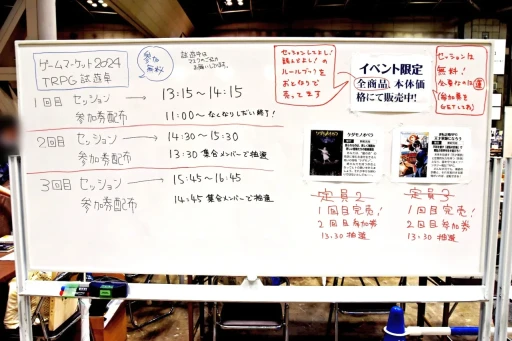 ゲームマーケット2024
TRPG試遊卓
参加
無料
試遊中は
マスクのご協力
お願いします。
1回目 セッション → 13:15〜14:15
参加券配布 11:00〜なくなりしだい終了!
2回目 セッション → 14:30〜15:30
参加券配布 13:30 集合メンバーで抽選
3回目 セッション → 15:45〜16:45
参加券配布 14:45 集合メンバーで抽選
セッションしてよし!
読んでよし!の
ルールブックを
おとなりで
売ってます
イベント限定
全商品、本体価
格にて販売中!
セッションは
無料!
必要なのは運
(参加券を
GETしてね)
ケダモノオペラ
定員2
1回目完売!
2回目参加券
13:30 抽選
定員3
1回目完売!
2回目参加券
13:30 抽選